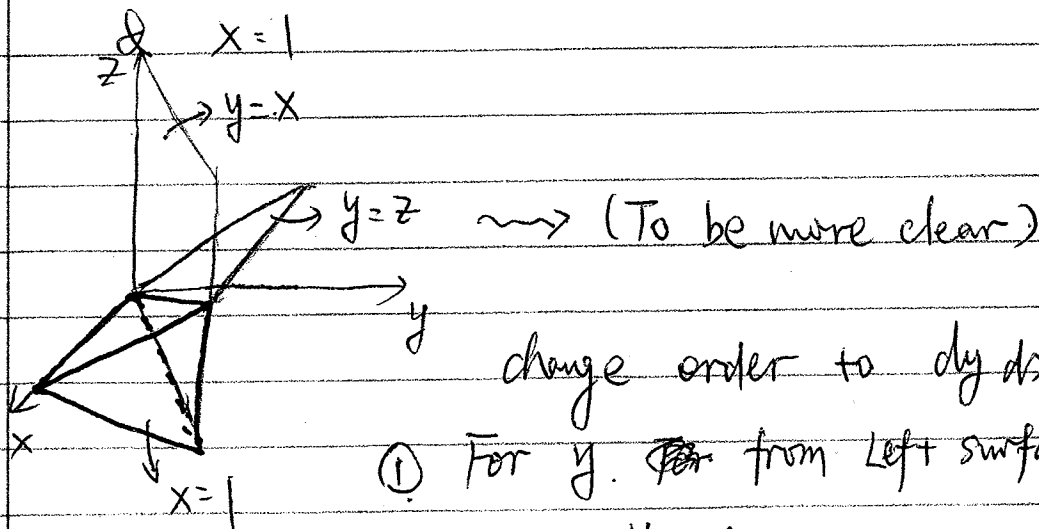 & x = 1
z
→ y = x
→ y = z ⇝ (To be more clear)
y
change order to dy d
x
① For y. from Left surf
x = 1